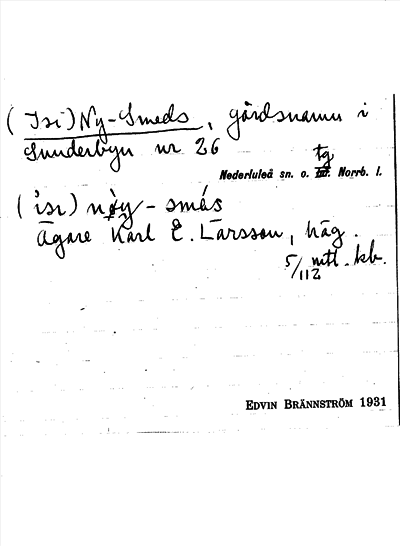 (Isi) Ny-Smeds, gårdsnamn i
Sunderbyn nr 26
tg
Nederluleå sn. o. hd. Norrb. l.
(isi) nøy - smás
Ägare Karl E. Larsson, häg.
5/112 mtl. kb.
EDVIN BRÄNNSTRÖM 1931